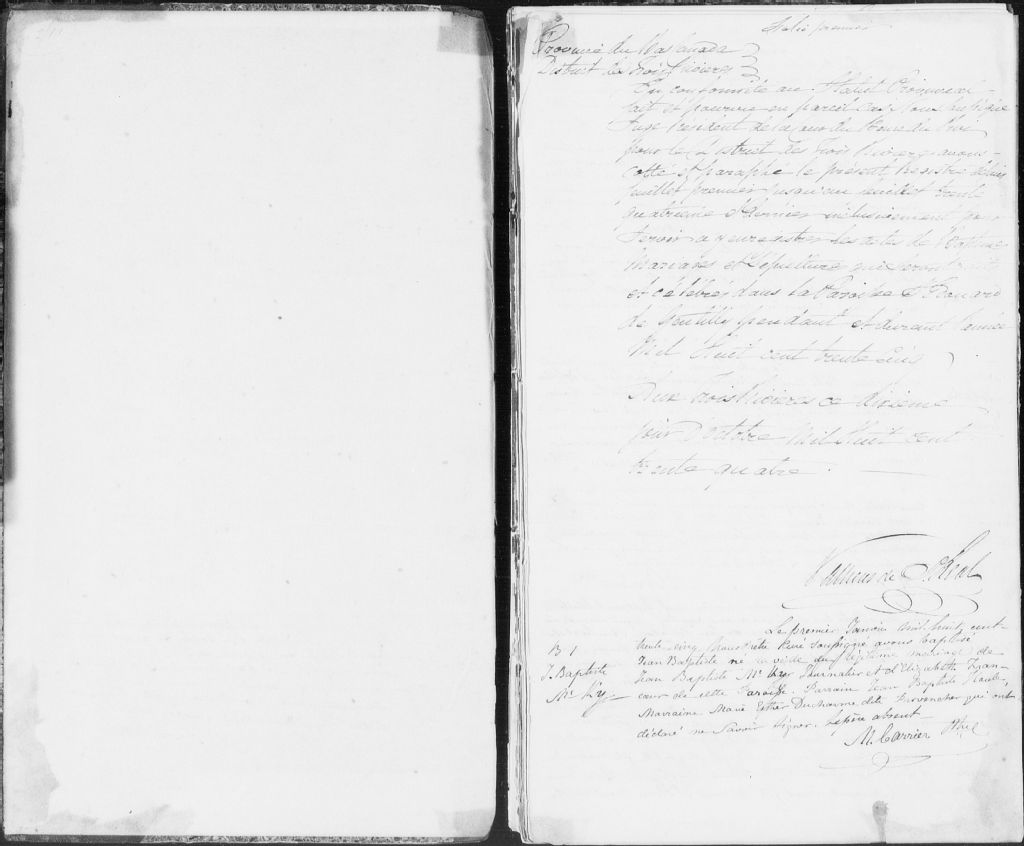 Folio premier
Province du Bas Canada
District des Trois Rivieres
En conformité au Statut Provincial
fait et pourvu en pareil cas Nous
Juge Résident de la Cour du Banc du Roi
pour le District des Trois Rivieres avons
cotté et paraphé le présent Registre depuis
feuillet premier jusqu'au feuillet trente
quatrieme et dernier inclusivement pour
servir a enregistrer les actes de Baptême
Mariages et Sépulture qui seront faits
et célébrés dans la Paroisse St Edouard
de Gentilly pendant et durant l'année
Mil Huit cent trente Cinq
Aux Trois Rivieres ce dixieme
jour d'octobre Mil Huit cent
trente quatre.
Vallieres de St Real
B 1
J. Baptiste
Le premier Janvier mil huit cent
trente-cinq Nous Prêtre Curé soussigné avons baptisé
Jean Baptiste né la veille du légitime mariage de
Jean Baptiste Journalier et d'Elizabeth
cœur de cette Paroisse. Parrain Jean Baptiste
Marraine Marie Esther Ducharme dite Provencher qui ont
déclaré ne savoir signer. Le père absent
M. Carrier Ptre